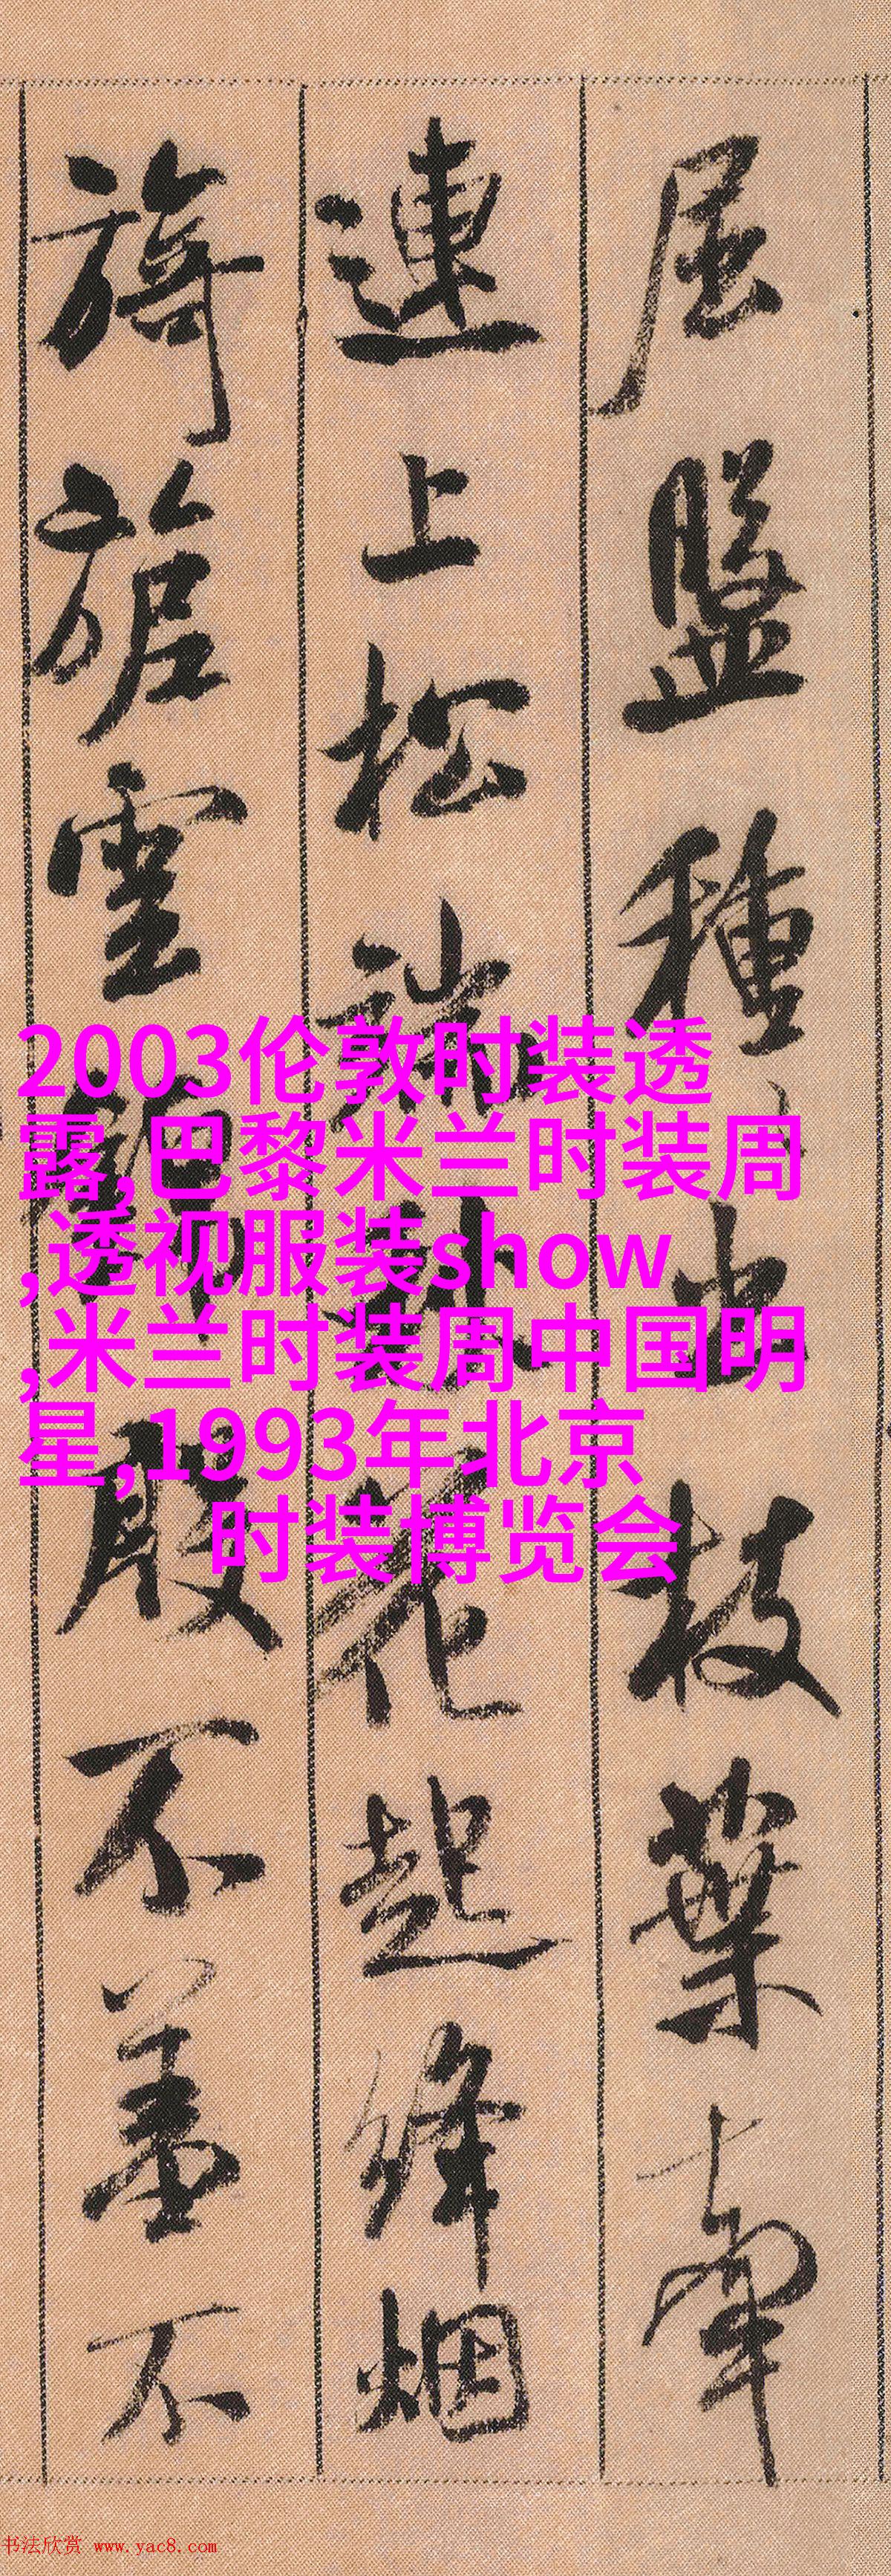 屈盤種出枝葉牽
連上松端秋花起絳烟
旖旎雲錦殷不羞不
2003伦敦时装透
露,巴黎米兰时装周
,透视服装show
,米兰时装周中国明
星,1993年北京
时装博览会
书法欣赏 www.yac8.com